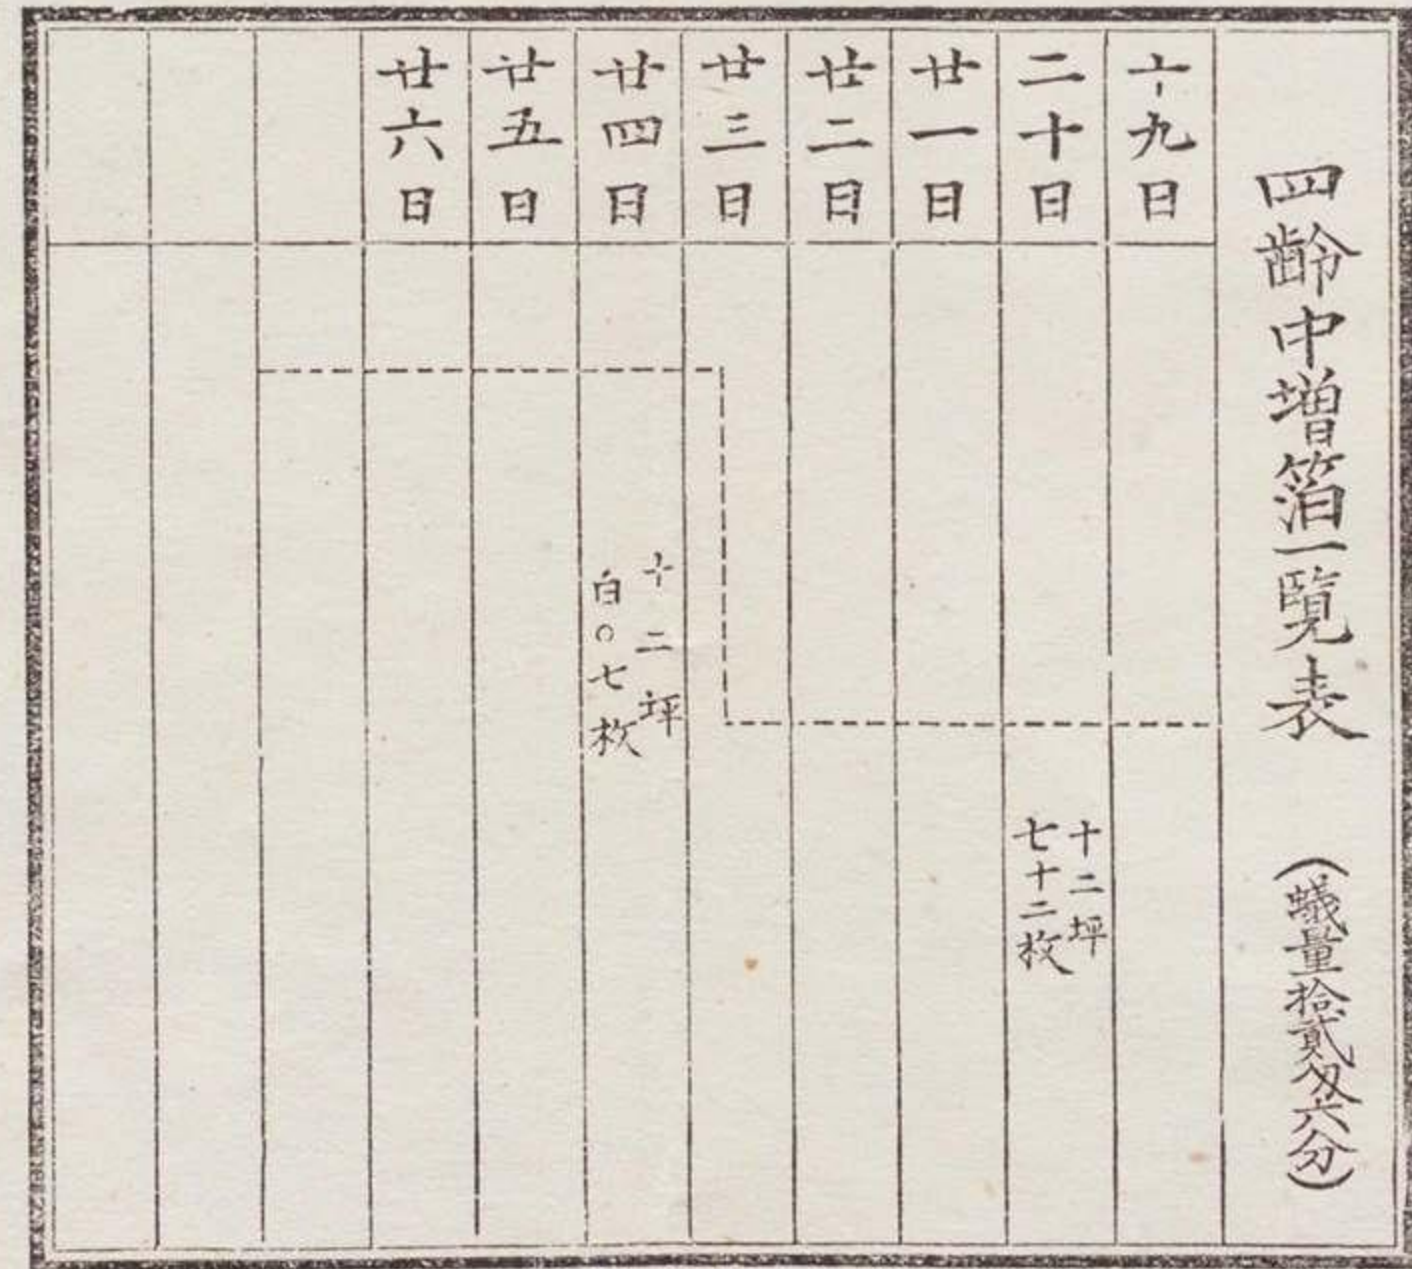 四齢中増箔一覧表
(蟻量拾貳匁六分)
十九日
二十日
廿一日
廿二日
廿三日
廿四日
廿五日
廿六日
十二坪
七十二枚
十二坪
白〇七枚